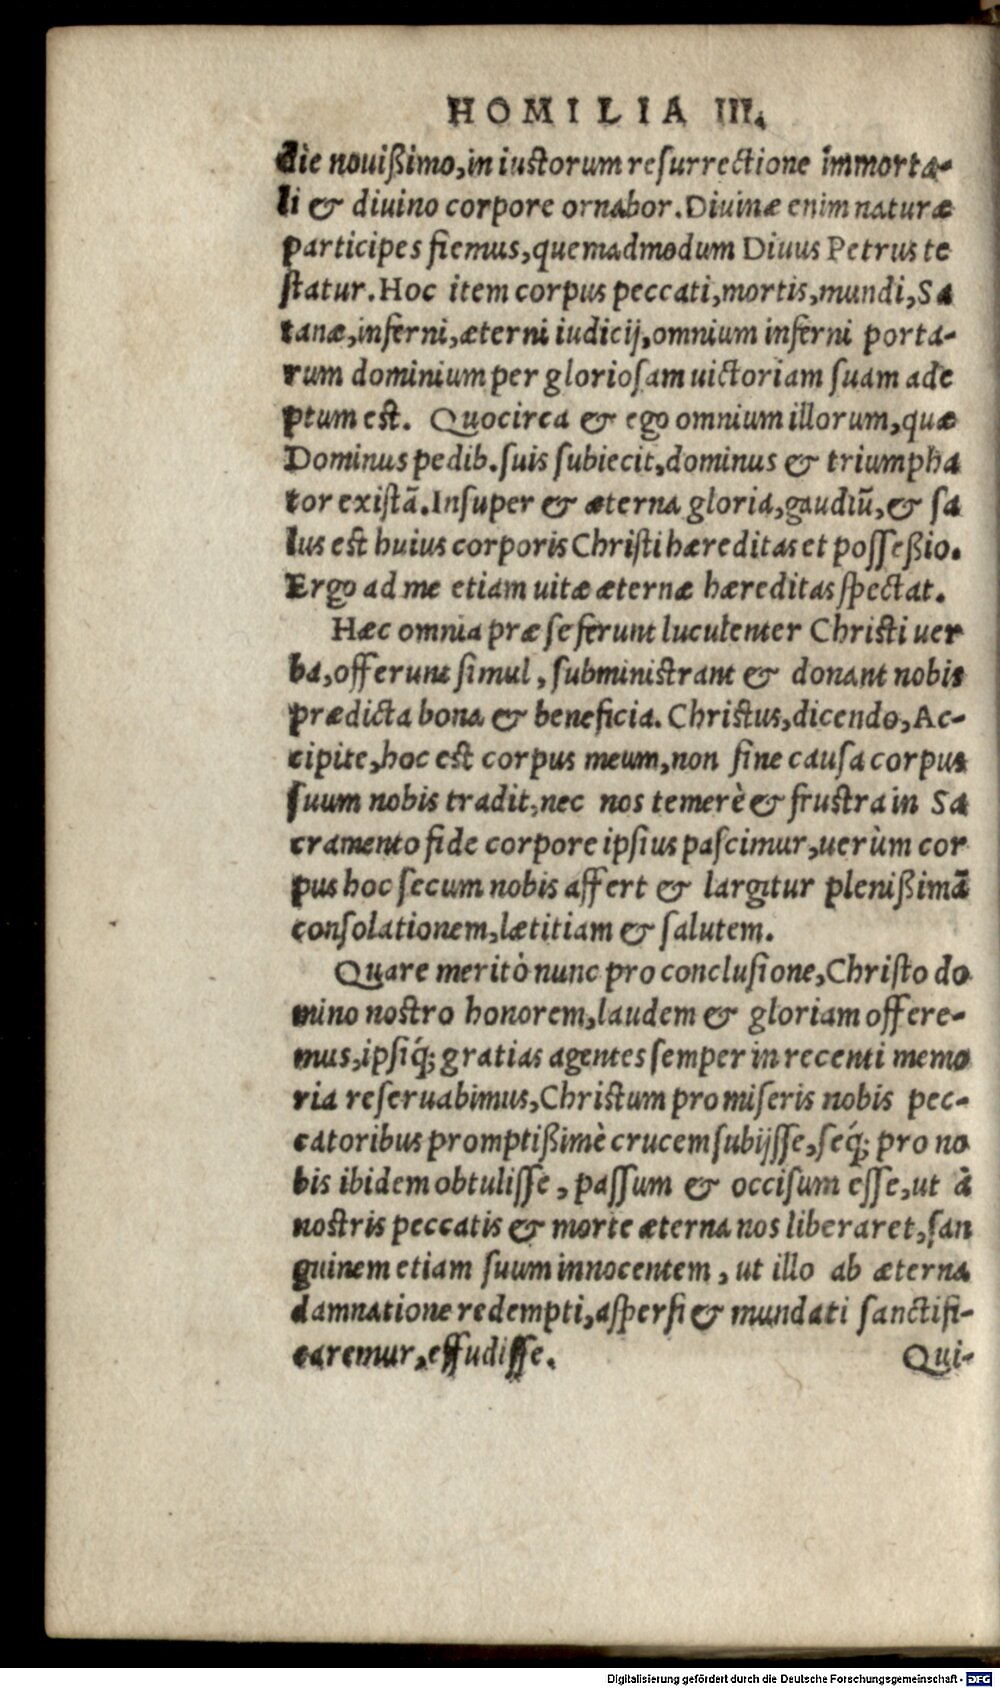 HOMILIA III.
die nouißimo, in iustorum resurrectione immorta-
li & diuino corpore ornabor. Diuinæ enim naturæ
participes fiemus, quemadmodum Diuus Petrus te
statur. Hoc item corpus peccati, mortis, mundi, Sa
tanæ, inferni, æterni iudicij, omnium inferni porta-
rum dominium per gloriosam uictoriam suam ade
ptum est. Quocirca & ego omnium illorum, quæ
Dominus pedib. suis subiecit, dominus & triumpha
tor existā. Insuper & æterna gloria, gaudiū, & sa
lus est huius corporis Christi hæreditas et posseßio.
Ergo ad me etiam uitæ æternæ hæreditas spectat.
Hæc omnia præ se ferunt luculenter Christi uer
ba, offerunt simul, subministrant & donant nobis
prædicta bona & beneficia. Christus, dicendo, Ac-
cipite, hoc est corpus meum, non sine causa corpus
suum nobis tradit, nec nos temerè & frustra in Sa
cramento fide corpore ipsius pascimur, uerùm cor
pus hoc secum nobis affert & largitur plenißimā
consolationem, lætitiam & salutem.
Quare meritò nunc pro conclusione, Christo do
mino nostro honorem, laudem & gloriam offere-
mus, ipsiq́; gratias agentes semper in recenti memo
ria reseruabimus, Christum pro miseris nobis pec-
catoribus promptißimè crucem subijsse, seq́; pro no
bis ibidem obtulisse, passum & occisum esse, ut à
nostris peccatis & morte æterna nos liberaret, san
guinem etiam suum innocentem, ut illo ab æterna
damnatione redempti, aspersi & mundati sanctifi-
caremur, effudisse.
Qui-
Digitalisierung gefördert durch die Deutsche Forschungsgemeinschaft - DFG